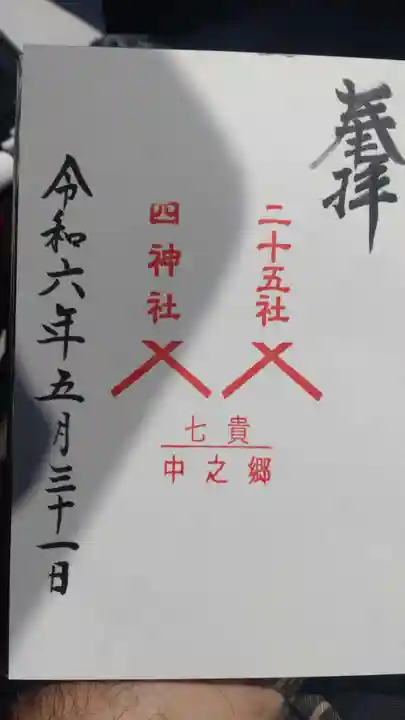 奉拝
二十五社
四神社
貴七
中之郷
令和六年五月三十一日